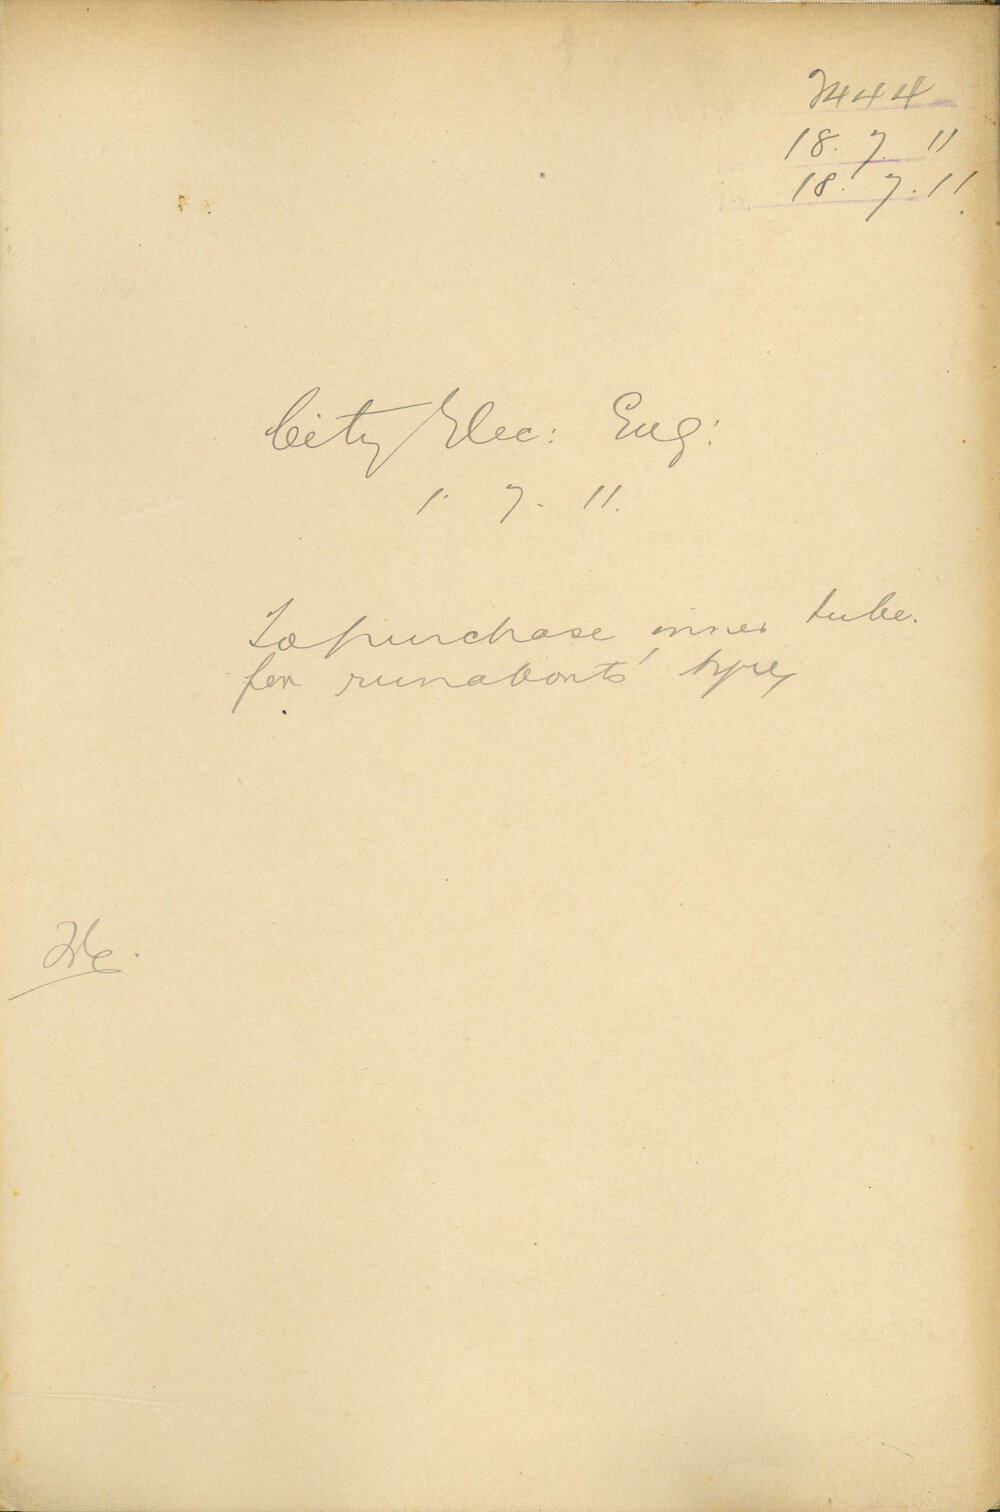 2444
18. 7. 11
18. 7. 11
City Elec: Eng:
1. 7. 11.
To purchase inner tube.
for runabouts' tyre